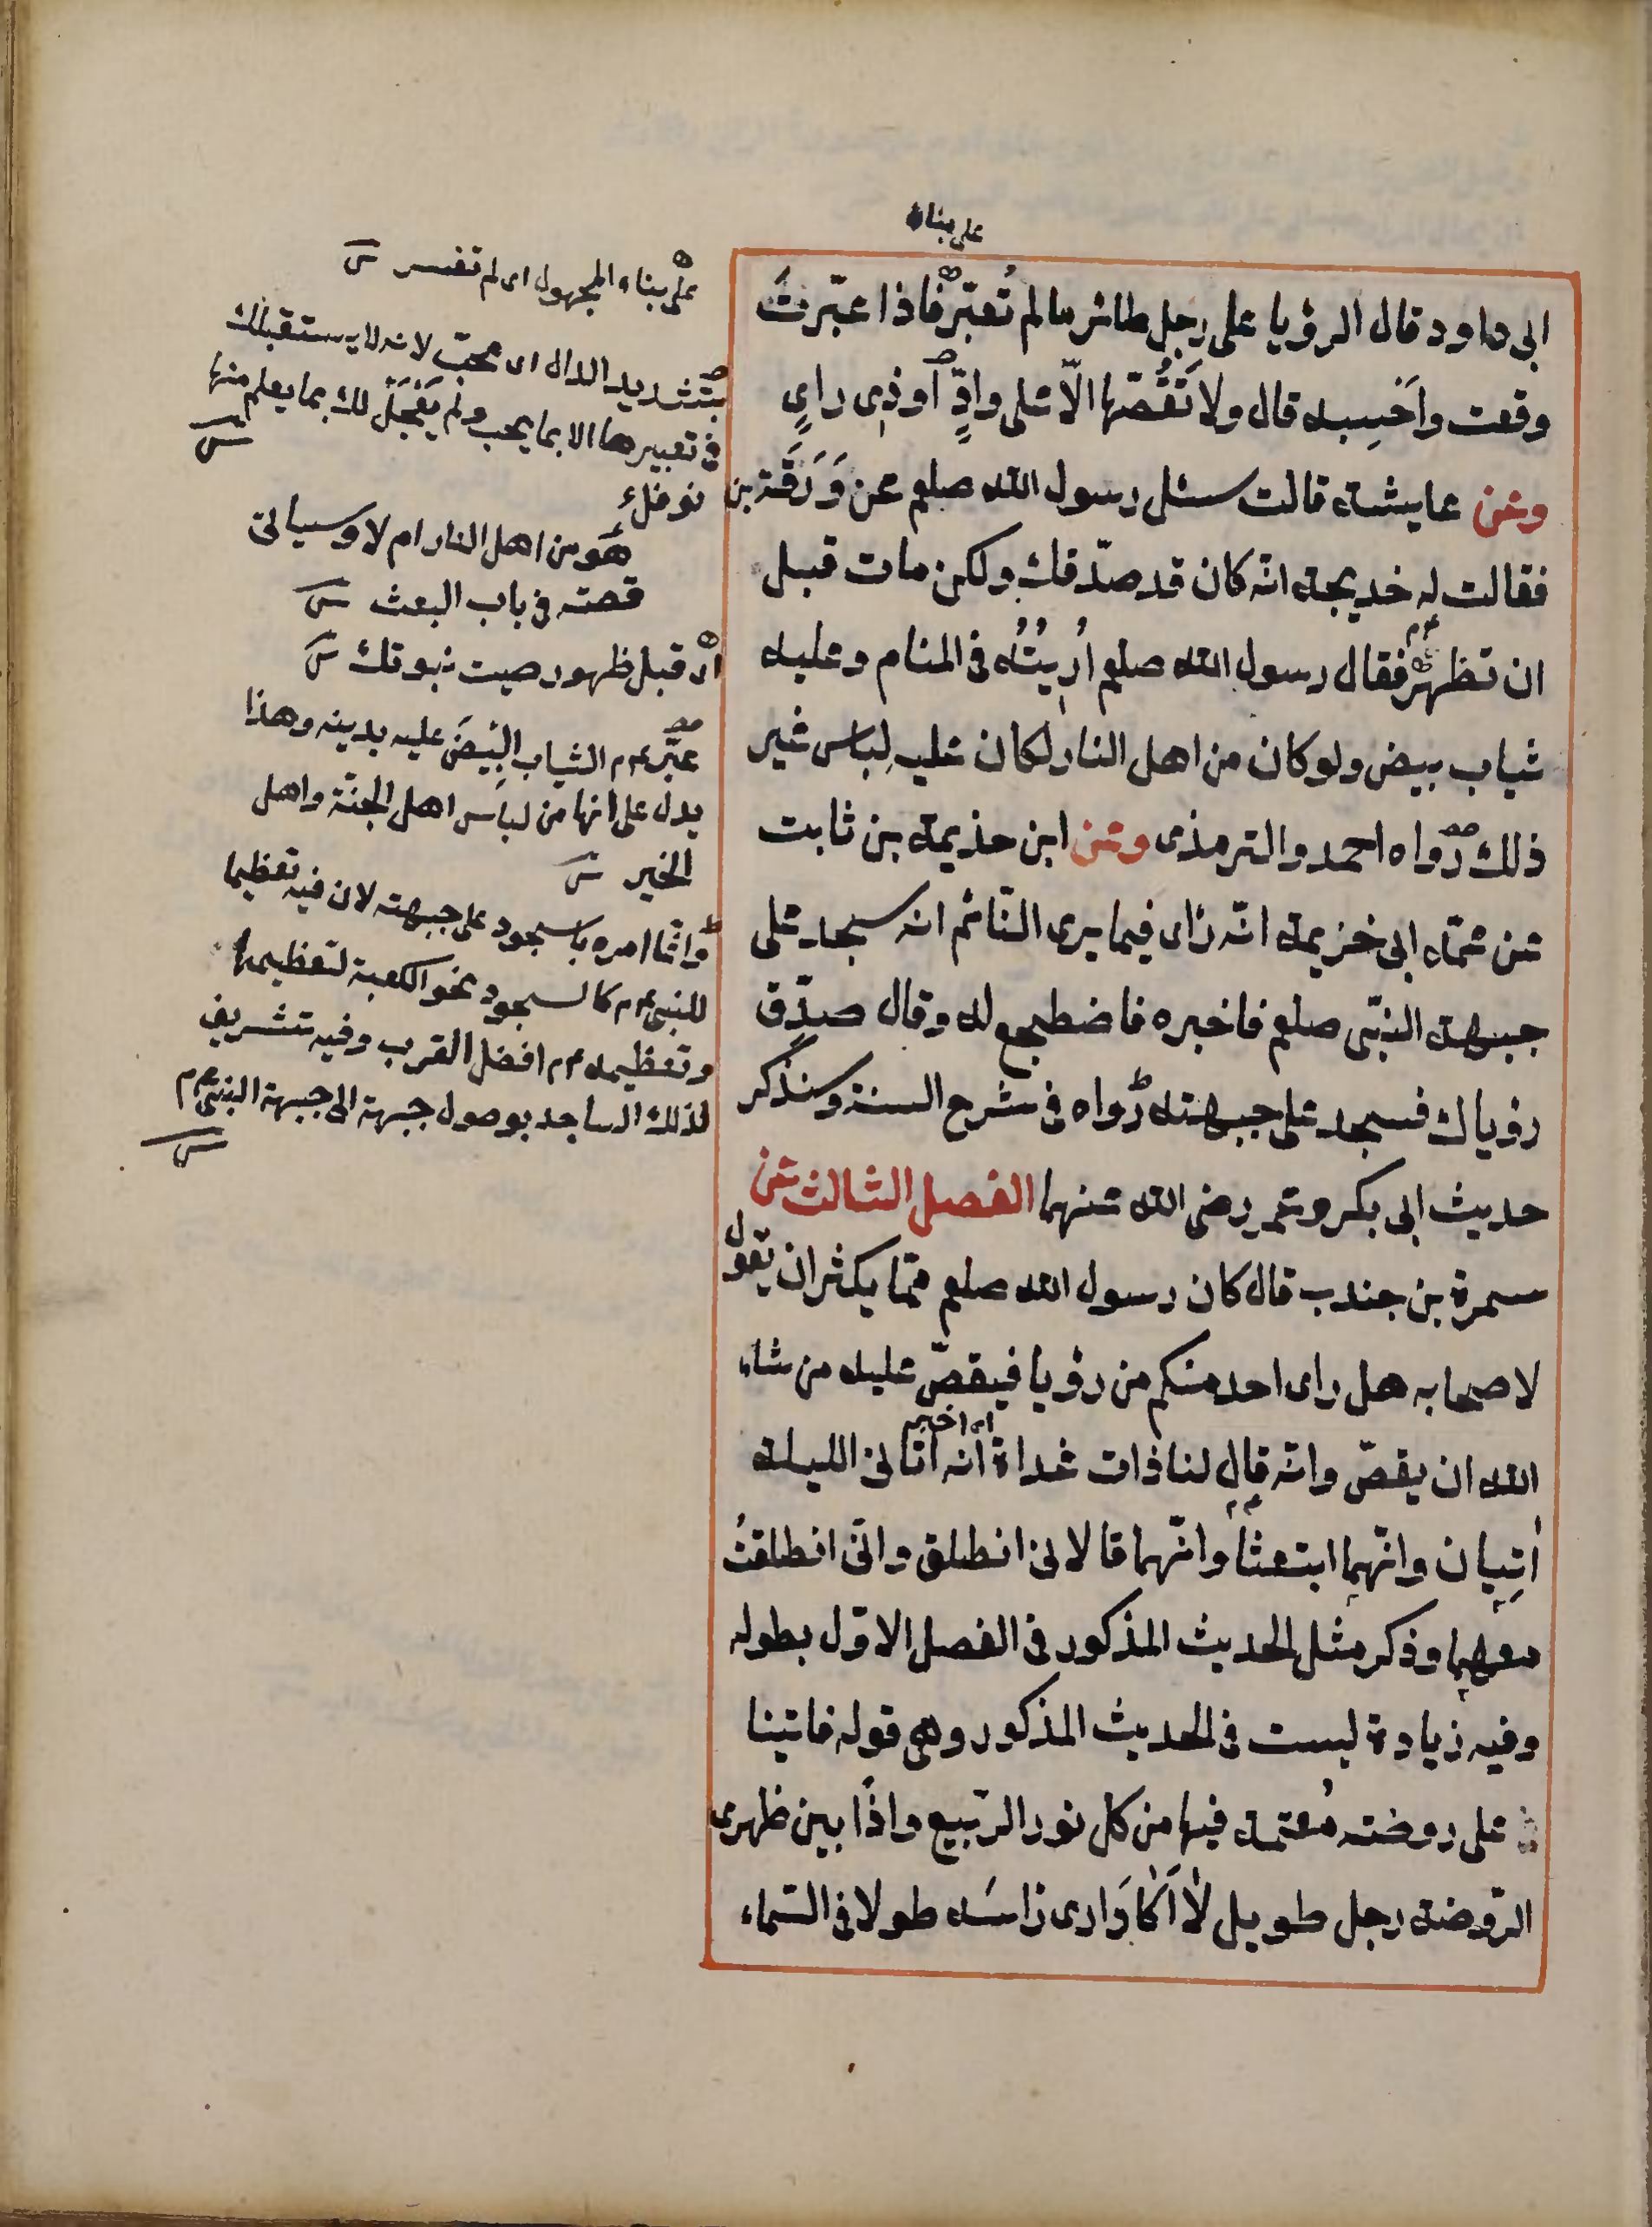 على بناء
ابى داود قال الرؤيا على رجل طائر ما لم تُعبّر فاذا عبّرتَ
وقعت واَحْسِبه قال ولا تَقُصّها الّا على وادٍّ او ذى راىٍ
وعن عايشة قالت سئل رسول الله صلعم عن وَرَقَة بن نوفل
فقالت له خديجة انّه كان قد صدّقك ولكن مات قبل
ان تظهر فقال رسول الله صلعم اُرِيتُه فى المنام وعليه
ثياب بيض ولو كان من اهل النار لكان عليه لباس غير
ذلك رواه احمد والترمذى وعن ابن حذيمة بن ثابت
عن عمّه ابى خزيمة انّه رَاى فيما يرى النّائم انه سجد على
جبهة النبّى صلعم فاخبره فاضطجع له وقال صدِّق
رؤياك فسجد على جبهته رواه فى شرح السنة وسنذكر
حديث ابى بكر وعمر رضى الله عنهما الفصل الثالث عن
سمرة بن جندب قال كان رسول الله صلعم ممّا يكثر ان يقول
لاصحابه هل راى احد منكم من رؤيا فيقصّ عليه من شاء
الله ان يقصّ وانّه قال لنا ذات غداة انه اتانى الليلة
اٰتِيان وانّهما ابتعثا وانّهما قالا لى انطلق وانّى انطلقتُ
معهما وذكر مثل الحديث المذكور فى الفصل الاوّل بطوله
وفيه زيادة ليست فى الحديث المذكور وهى قوله فاتينا
على روضة مُعتمة فيها من كل نور الرّبيع واذًا بين ظهرى
الرّوضة رجل طويل لاٰ اَكٰادَ ارى رَاسَه طولا فى السّماء
على بناء المجهول اى لم تفسر
بتشديد الدال اى محبّ لانه لا يستقبلك
فى تعبيرها الا بما يحب ولم يَعْجَلْ لك بما يعلم منها
هو من اهل النار ام لا وسياتى
قصته فى باب البعث
اى قبل ظهور صيت نبوتك
عبّر عم الثياب البِيْضَ عليه بدينه وهذا
يدل على انها من لباس اهل الجنّة واهل
الخير
وانّما امره بالسجود على جبهته لان فيه تعظيما
للنبى عم كالسجود نحو الكعبة لتعظيمها
وتعظيمه عم افضل القرب وفيه تشريف
لذلك الساجد بوصول جبهة الى جبهة النبى عم